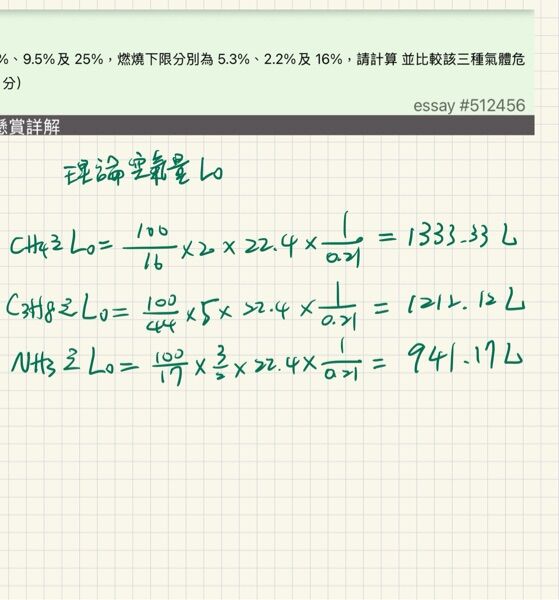 %、9.5%及 25%，燃燒下限分別為 5.3%、2.2%及 16%，請計算 並比較該三種氣體危
分)
essay #512456
懸賞詳解
理論空氣量 L₀
CH4之 L₀ = 100/16 × 2 × 22.4 × 1/0.21 = 1333.33 L
C3H8之 L₀ = 100/44 × 5 × 22.4 × 1/0.21 = 1212.12 L
NH3之 L₀ = 100/17 × 3/2 × 22.4 × 1/0.21 = 941.17 L